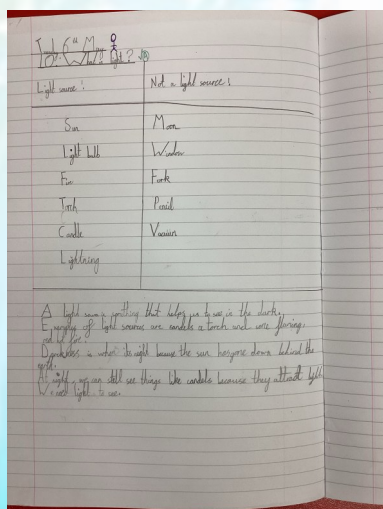 Tuesday 6th May
TO: What is light?
Light source: Not a light source:
Sun Moon
Light bulb Window
Fire Fork
Torch Pencil
Candle
Lightning
A light is something that helps us to see in the dark.
of light sources are candels a torch and
fire.
Darkness is when its night because the sun has gone down behind the
At night, we can still see things like candels because they attract light.
We need light to see.